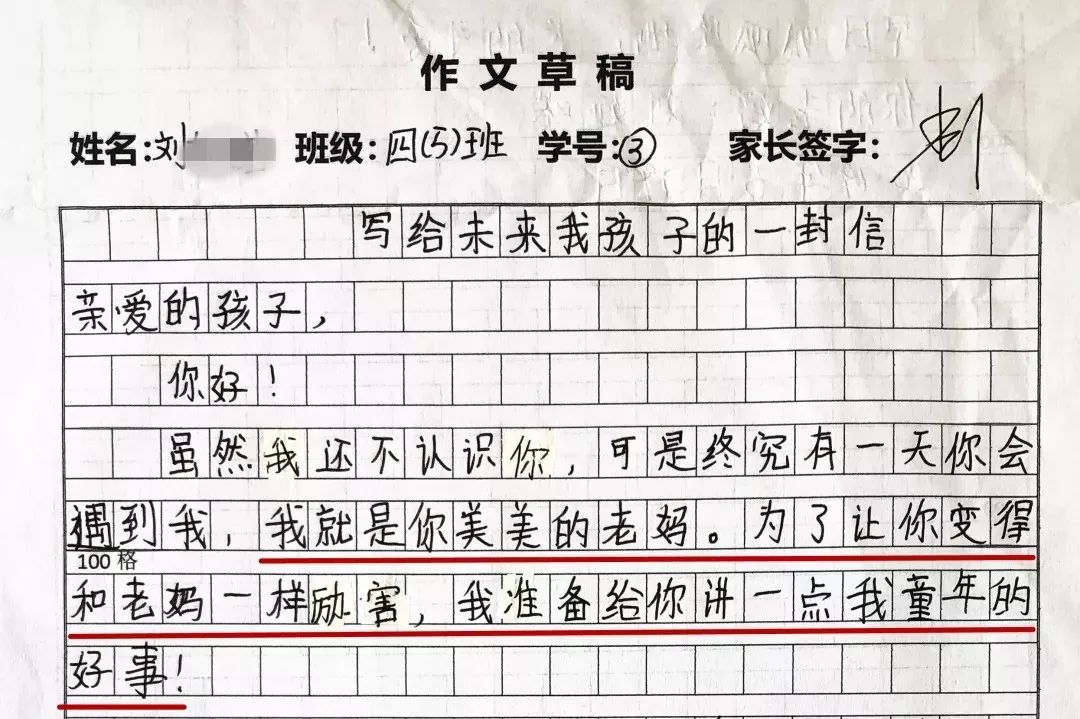 作文草稿
姓名:刘 班级:四(5)班 学号:③ 家长签字:
写给未来我孩子的一封信
亲爱的孩子,
你好!
虽然我还不认识你,可是终究有一天你会
遇到我,我就是你美美的老妈。为了让你变得
100格
和老妈一样励害,我准备给你讲一点我童年的
好事!